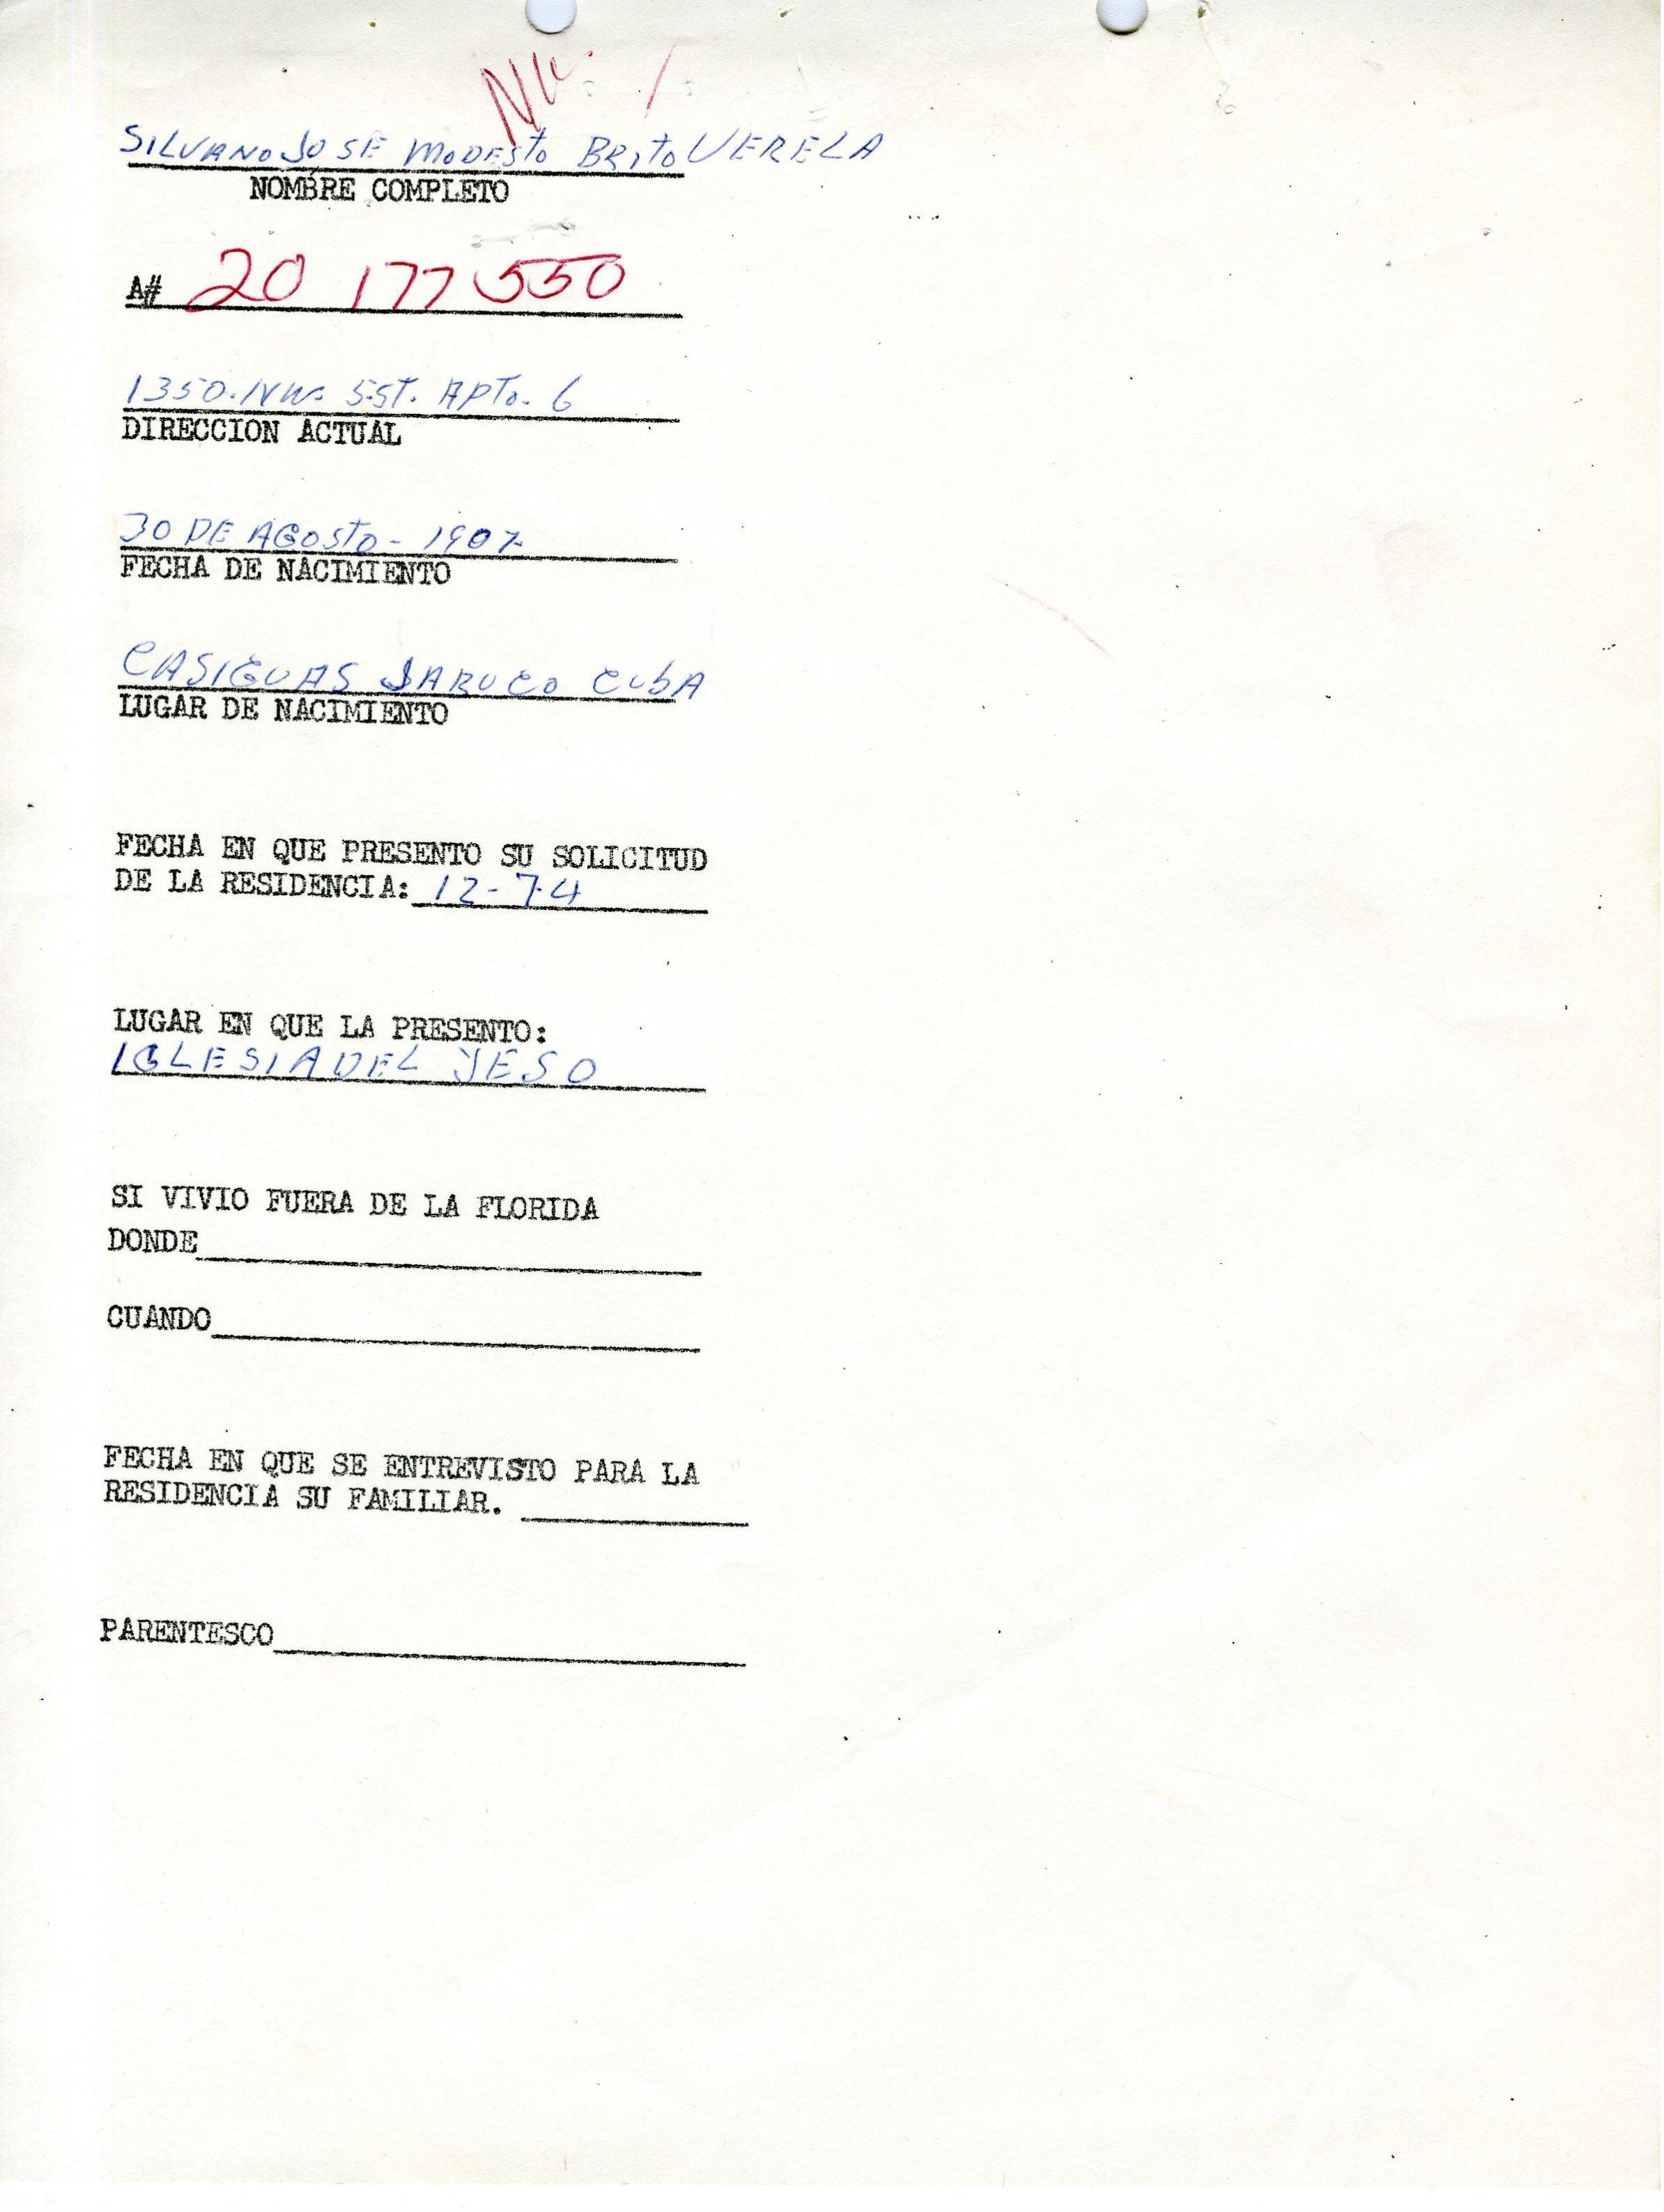 SILVANO JOSE MODESTO BRITO VERELA
NOMBRE COMPLETO
A# 20 177 550
1350. NW. 5 ST. APTo. 6
DIRECCION ACTUAL
30 DE AGOSTO - 1907
FECHA DE NACIMIENTO
CASIGUAS JARUCO CUBA
LUGAR DE NACIMIENTO
FECHA EN QUE PRESENTO SU SOLICITUD
DE LA RESIDENCIA: 12-74
LUGAR EN QUE LA PRESENTO:
IGLESIA DEL YESO
SI VIVIO FUERA DE LA FLORIDA
DONDE
CUANDO
FECHA EN QUE SE ENTREVISTO PARA LA
RESIDENCIA SU FAMILIAR.
PARENTESCO